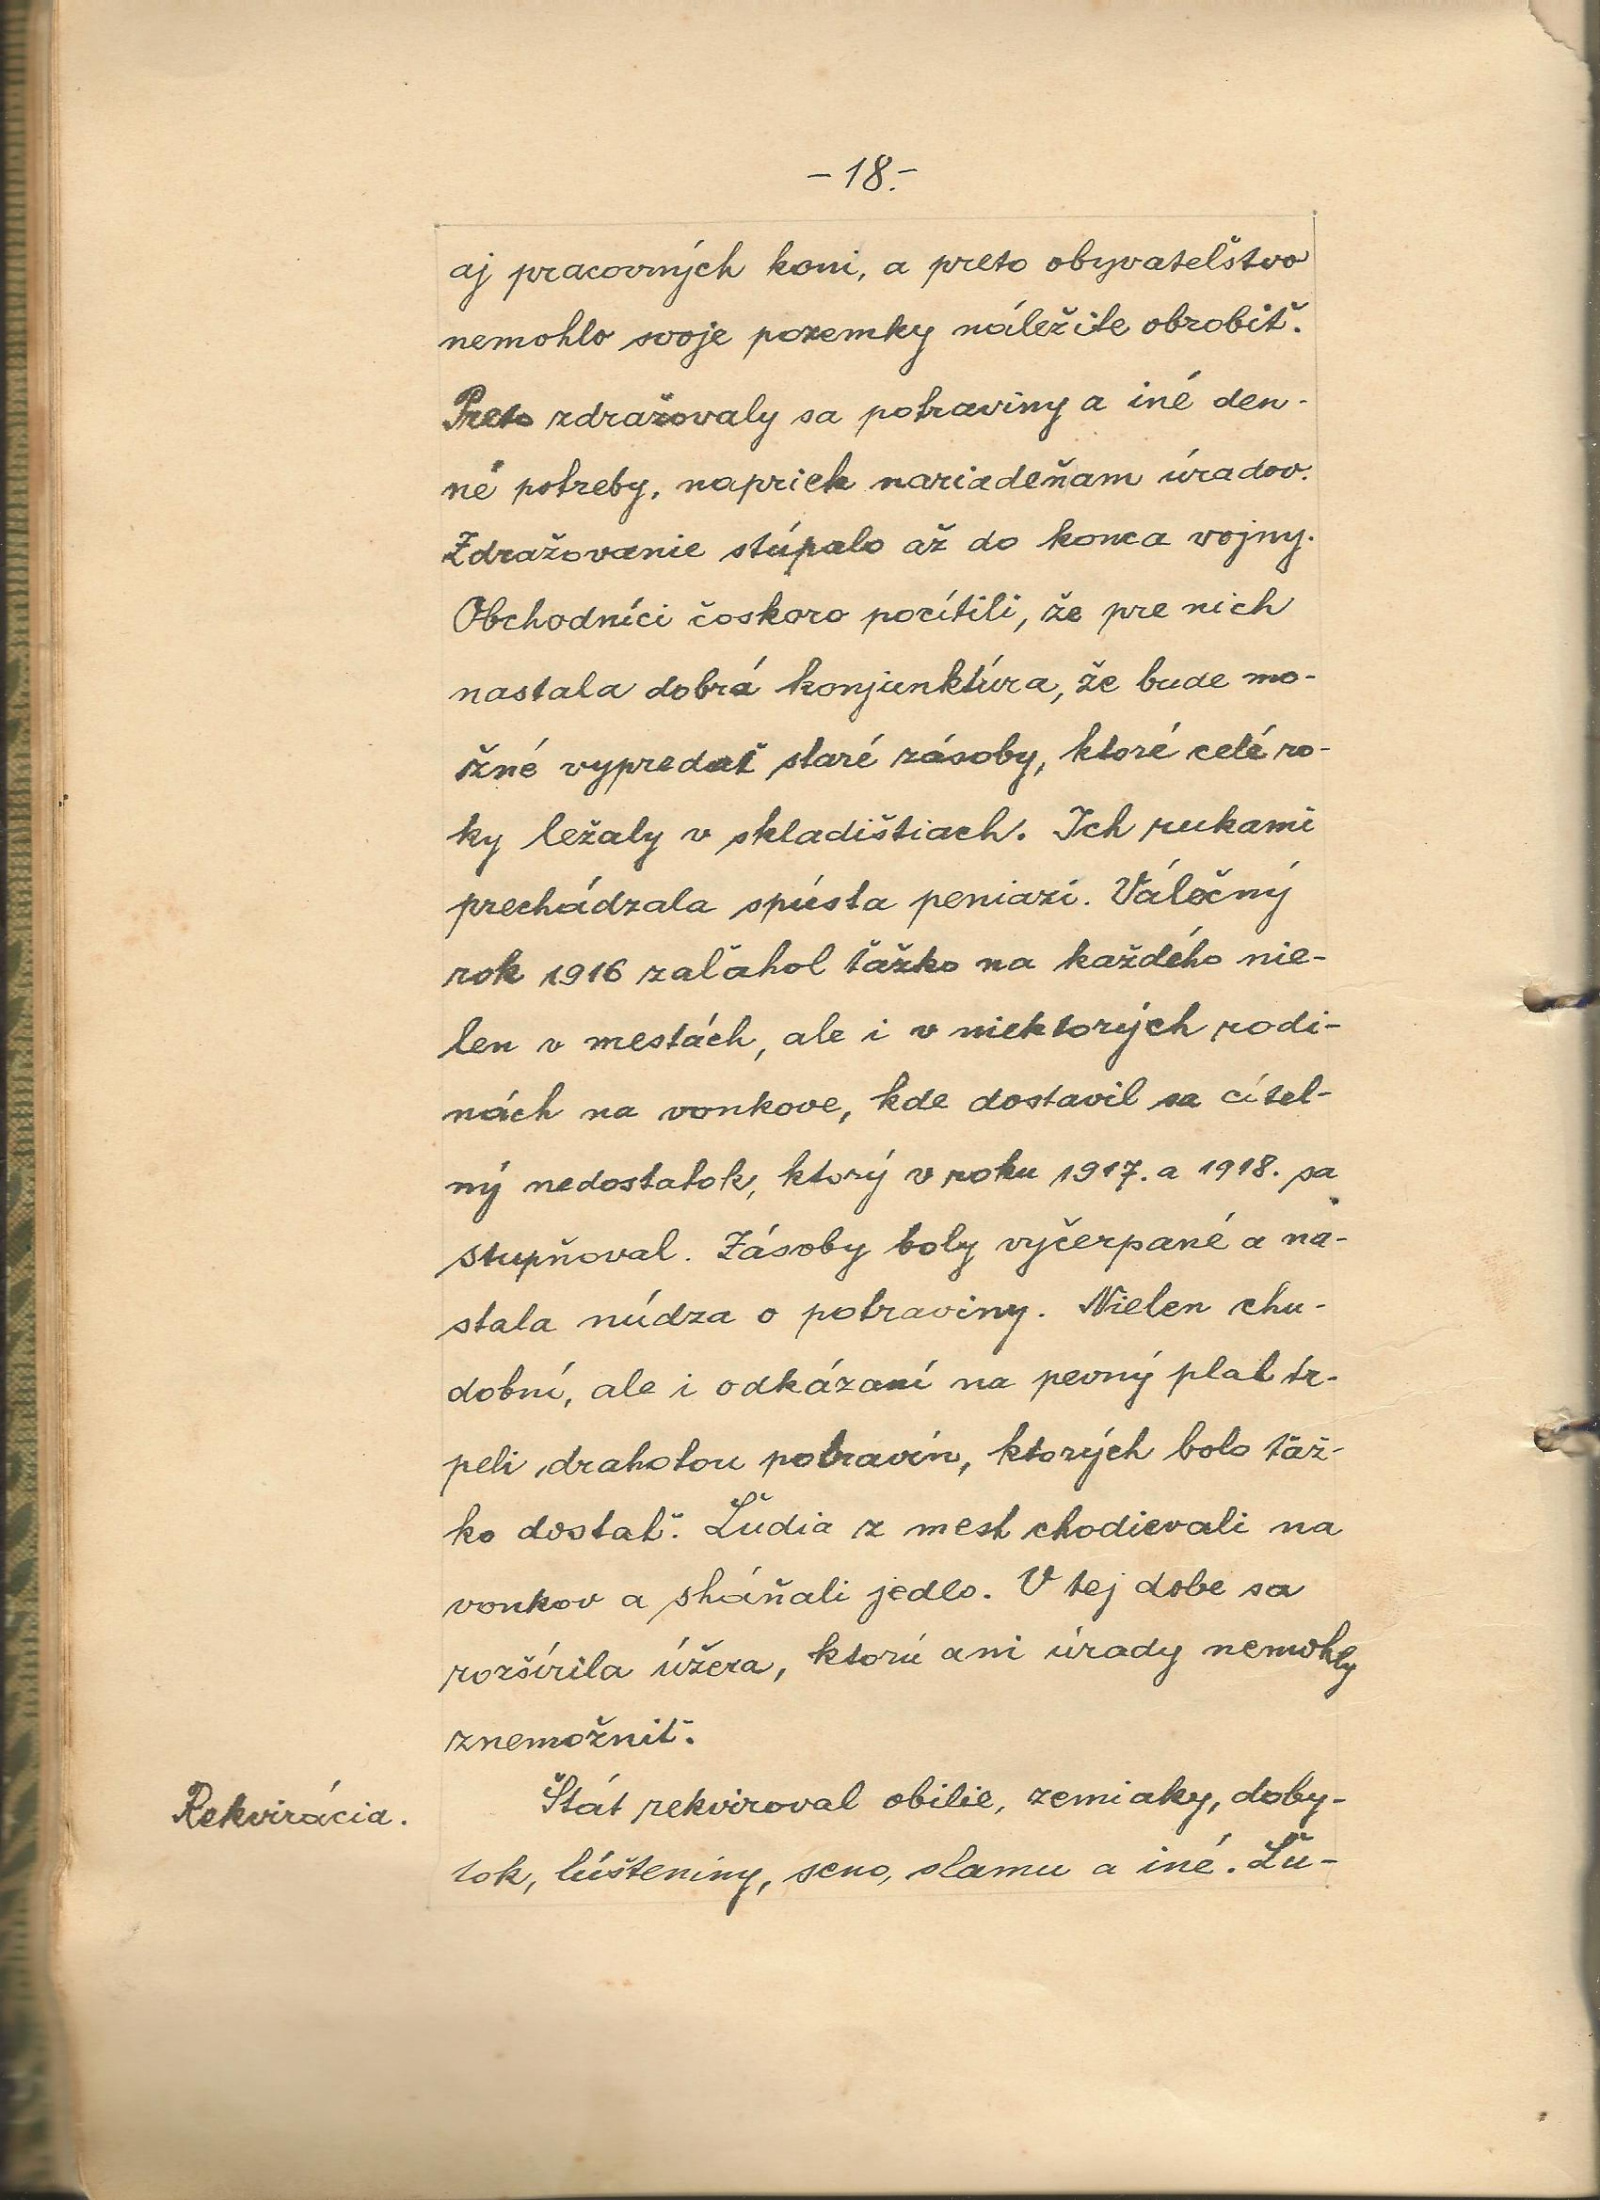 - 18. -
aj pracovných koni, a preto obyvateľstvo
nemohlo svoje pozemky náležite obrobiť.
Preto zdražovaly sa potraviny a iné den-
né potreby, napriek nariadeňam úradov.
Zdražovanie stúpalo až do konca vojny.
Obchodníci čoskoro pocítili, že pre nich
nastala dobrá konjunktúra, že bude mo-
žné vypredať staré zásoby, ktoré celé ro-
ky ležaly v skladištiach. Ich rukami
prechádzala spústa peniazí. Válečný
rok 1916 zaľahol ťažko na každého nie-
len v mestách, ale i v niektorých rodi-
nách na vonkove, kde dostavil sa citeľ-
ný nedostatok, ktorý v roku 1917. a 1918. sa
stupňoval. Zásoby boly vyčerpané a na-
stala núdza o potraviny. Nielen chu-
dobní, ale i odkázaní na pevný plat tr-
peli drahotou potravín, ktorých bolo ťaž-
ko dostať. Ľudia z mest chodievali na
vonkov a sháňali jedlo. V tej dobe sa
rozšírila úžera, ktorú ani úrady nemohly
znemožniť.
Rekvirácia. Štát rekviroval obilie, zemiaky, doby-
tok, lúšteniny, seno, slamu a iné. Ľu-